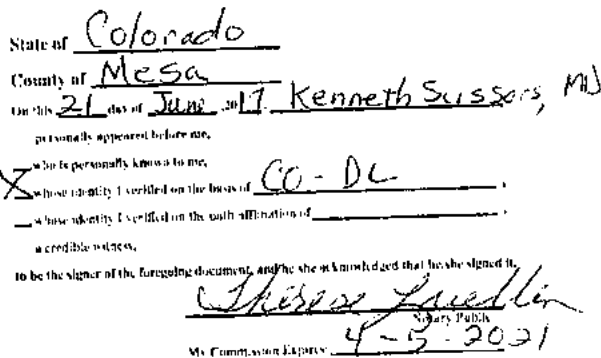 State of Colorado
County of Mesa
On this 21 day of June, 2017, Kenneth Scissors, MD
personally appeared before me,
who is personally known to me,
X whose identity I verified on the basis of CO - DL,
whose identity I verified on the oath/affirmation of,
a credible witness,
to be the signer of the foregoing document, and he/she acknowledged that he/she signed it.
Therese
Notary Public
My Commission Expires: 4-5-2021